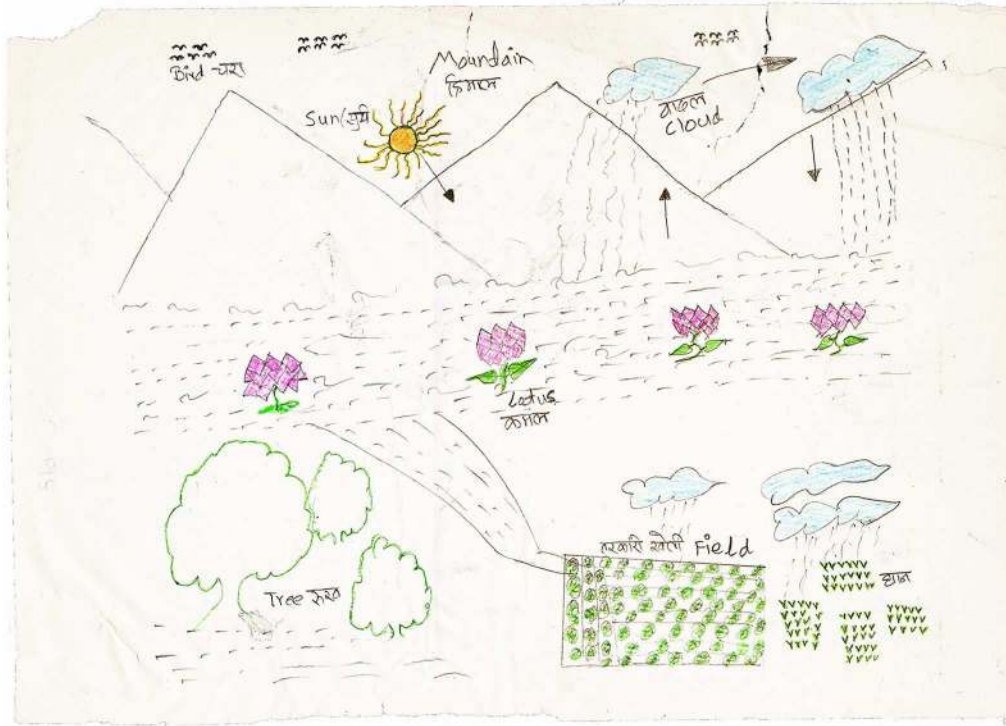 Bird चरा
Moundain
हिमाल
Sun/सुर्य
वादल
Cloud
Lotus
कमल
Tree रुख
तरकारी खेती Field
धान